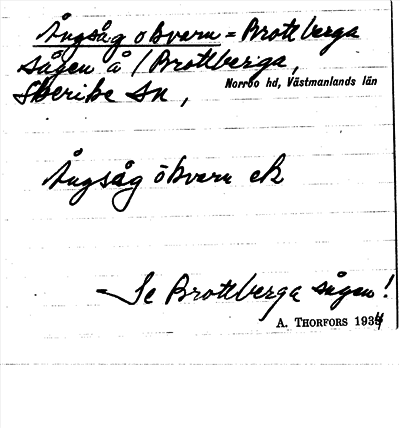 Ångsåg o kvarn = Brottberga
sågen å / Brottberga,
Skerike sn,
Norrbo hd, Västmanlands län
Ångsåg o kvarn ek
– Se Brottberga sågen!
A. THORFORS 1934